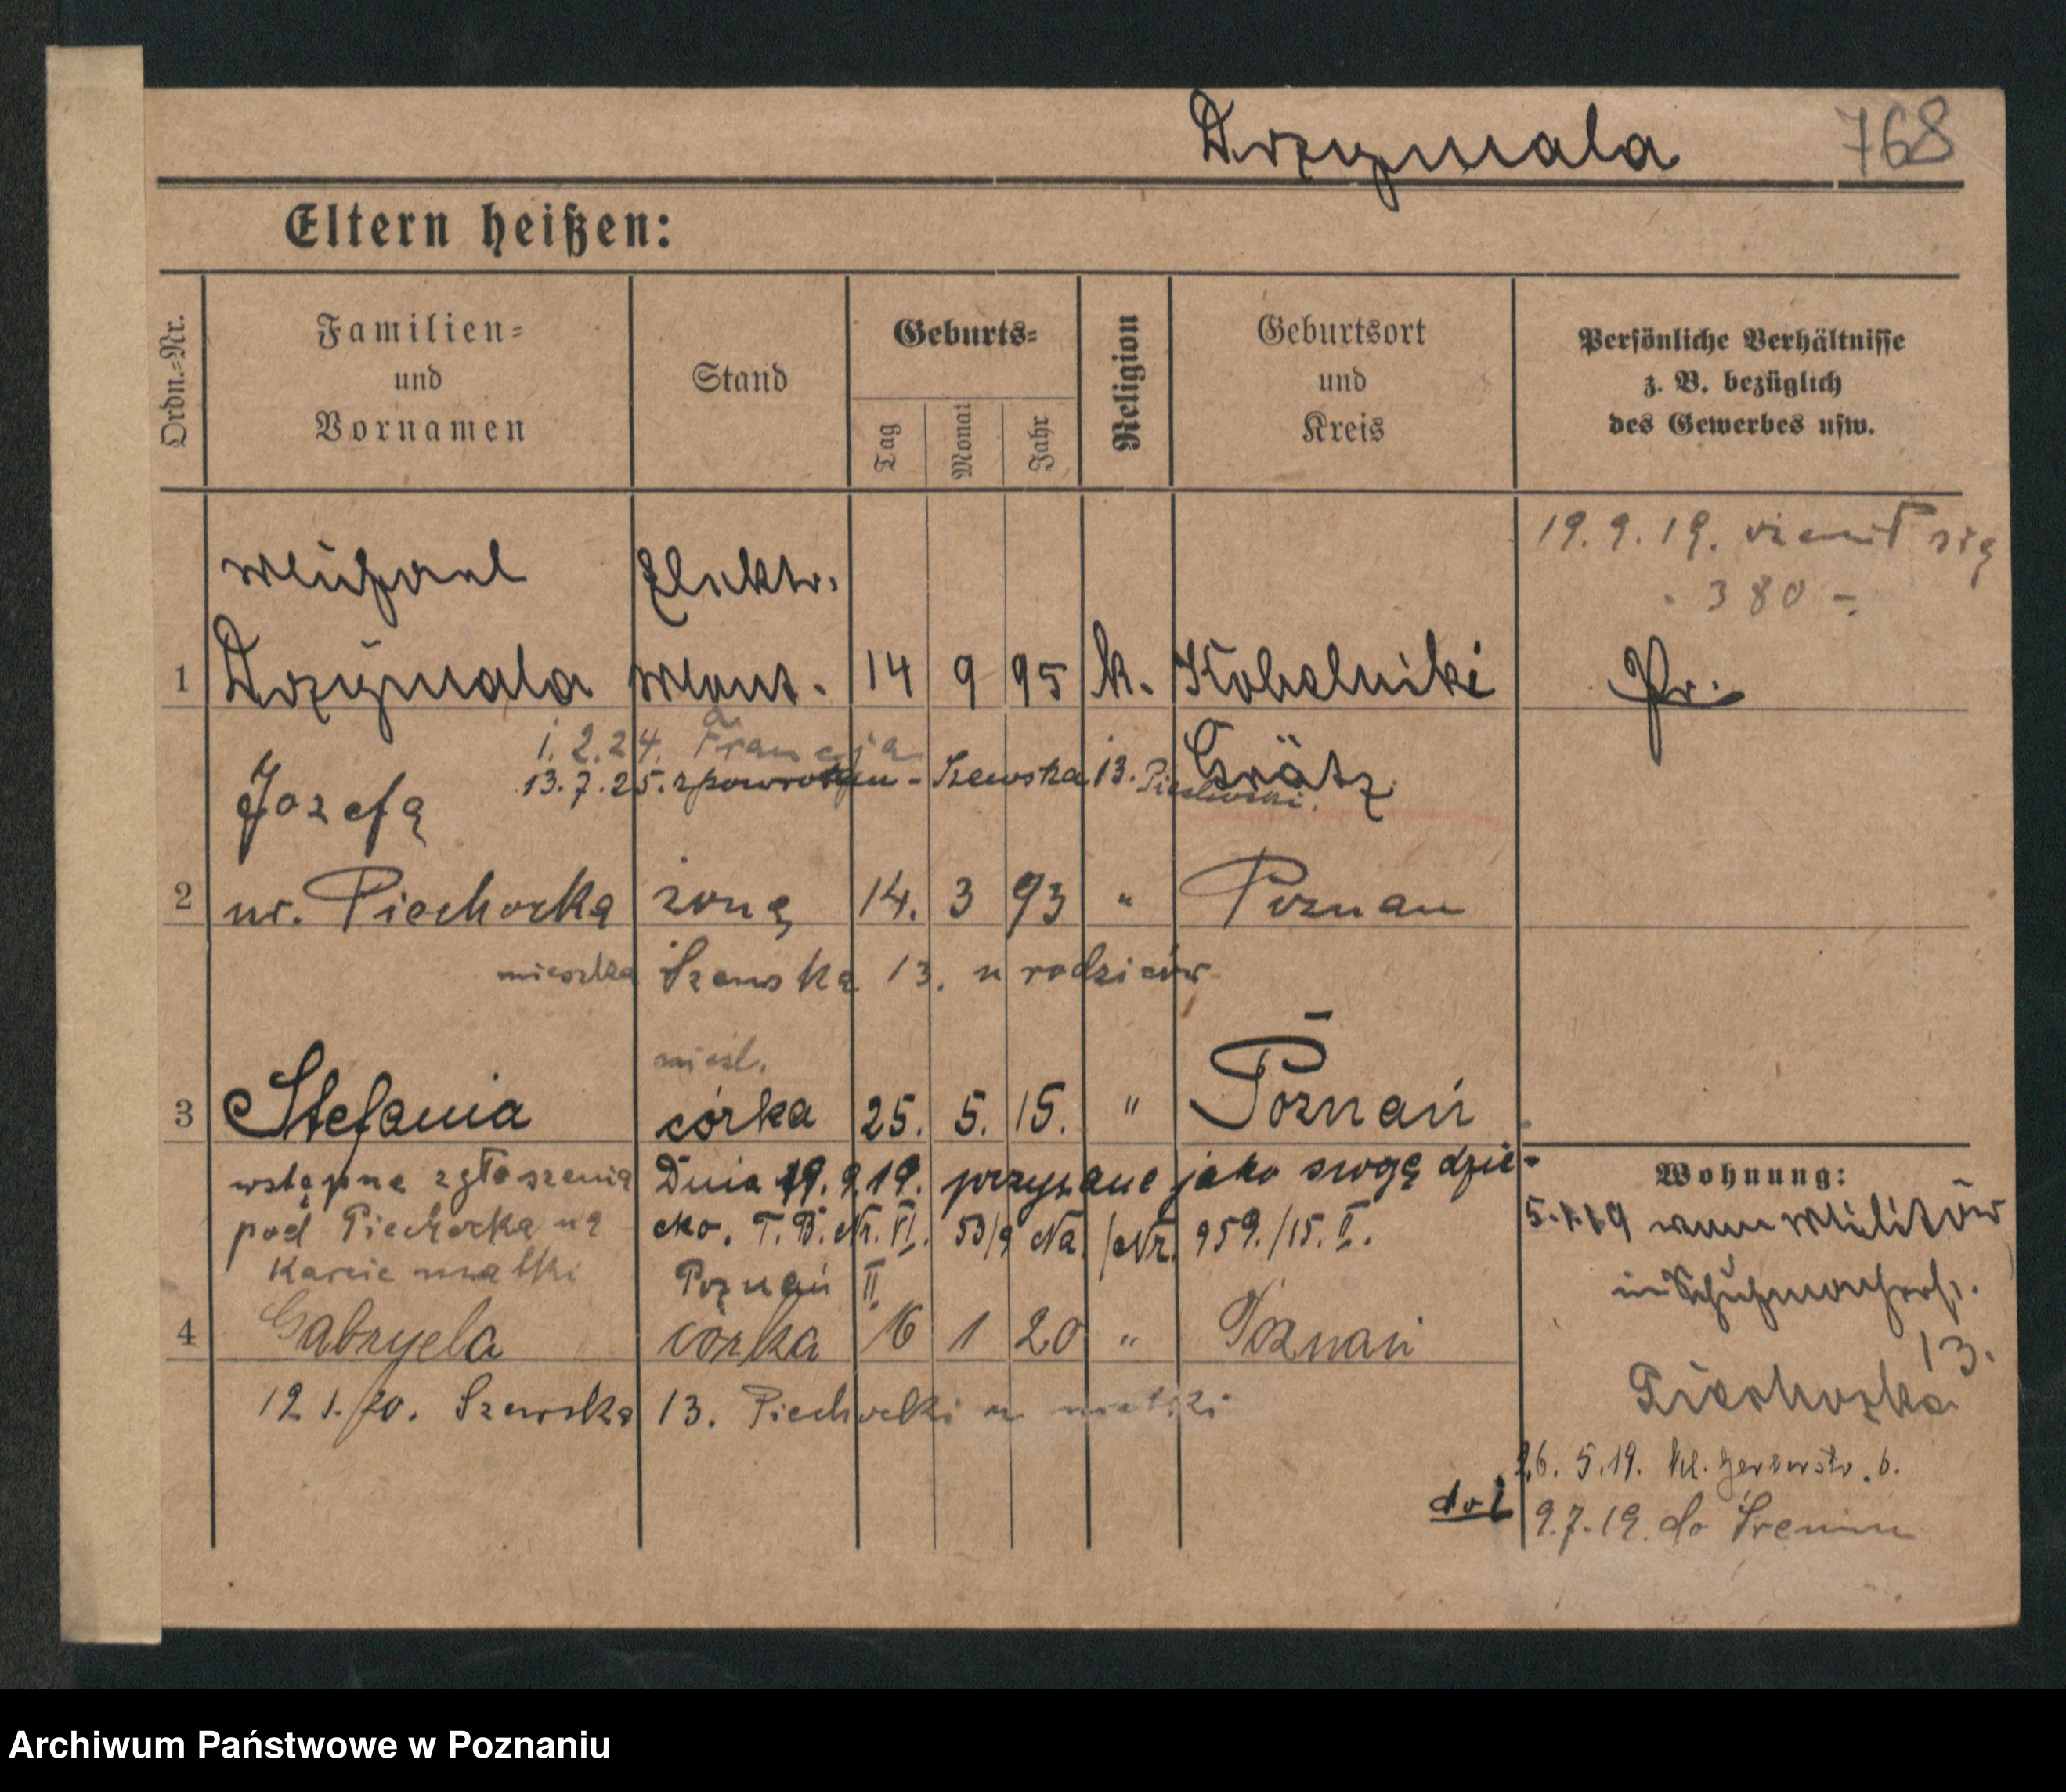 Drzymala 768
Eltern heißen:
Ordn.=Nr.
Familien=
und
Vornamen
Stand
Geburts=
Tag
Monat
Jahr
Religion
Geburtsort
und
Kreis
Persönliche Verhältnisse
z. B. bezüglich
des Gewerbes usw.
19.9.19. się
380 -
Michael Elektr.
1 Drzymala Mont. 14 9 95 k. Kobelniki Pr.
1.2.24. Francja Grätz
13.7.25. zpowrotem - Szewska 13. Piechocki.
Jozefa
2 ur. Piechocka żona 14. 3 93 " Poznan
mieszka Szewska 13. u rodziców
nieśl.
3 Stefania córka 25. 5. 15. " Poznań
wstępne zgłoszenia Dnia 19.9.19. przyznane jako swoje dzie-
pod Piechocka na cko. T. B. Nr. VI. 53/9 Na /Nr. 959./15. II.
karcie matki Poznań II
4 Gabryela córka 16 1 20 " Poznań
12.1.20. Szewska 13. Piechocki u matki
Wohnung:
5.1.19 vom Militär
in Schuhmacherstr.
13.
Piechocka
26. 5.19. kl. Gerberstr. 6.
9.7.19. do Śremu
Archiwum Państwowe w Poznaniu